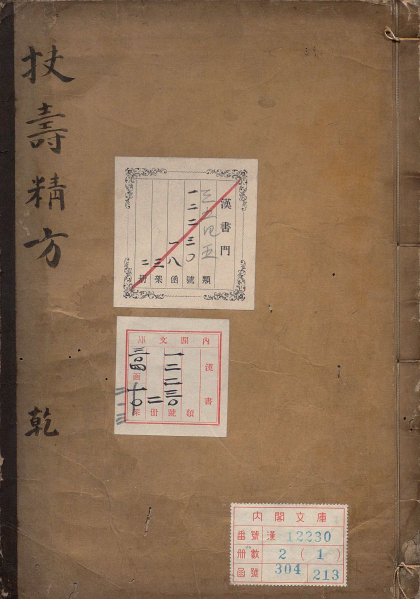 扙壽精方
乾
漢書門
類
一二二三〇號
一八函
三架
二册
內閣文庫
漢書
一二二三〇號
二册
三〇四函
一〇架
內閣文庫
番號 漢 12230
册數 2 (1)
函號 304 213